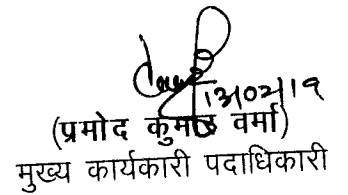 13/02/19
(प्रमोद कुमार वर्मा)
मुख्य कार्यकारी पदाधिकारी